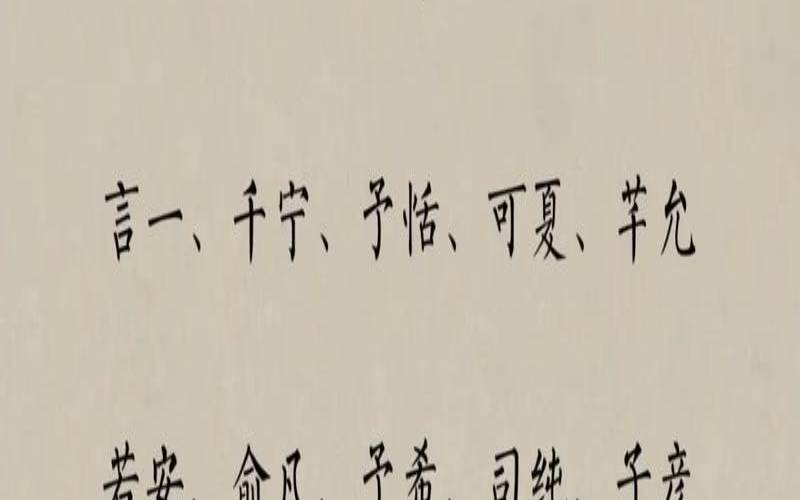 言一、千宁、予恬、可夏、芊允
若安、俞凡、予希、司纯、子彦